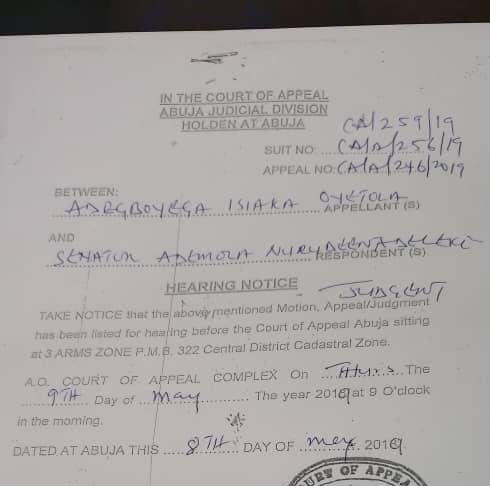 IN THE COURT OF APPEAL
ABUJA JUDICIAL DIVISION
HOLDEN AT ABUJA
CA/259/19
SUIT NO: CA/A/256/19
APPEAL NO: CA/A/246/2019
BETWEEN:
ADEGBOYEGA ISIAKA OYETOLA APPELLANT (S)
AND
SENATOR ADEMOLA NURUDEEN ADELEKE RESPONDENT (S)
HEARING NOTICE
TAKE NOTICE that the above mentioned Motion, Appeal/Judgment
has been listed for hearing before the Court of Appeal Abuja sitting
at 3 ARMS ZONE P.M.B. 322 Central District Cadastral Zone.
A.O. COURT OF APPEAL COMPLEX On Thurs. The
9TH Day of May The year 2019 at 9 O'clock
in the morning.
DATED AT ABUJA THIS 8TH DAY OF may 2019.
COURT OF APPEA